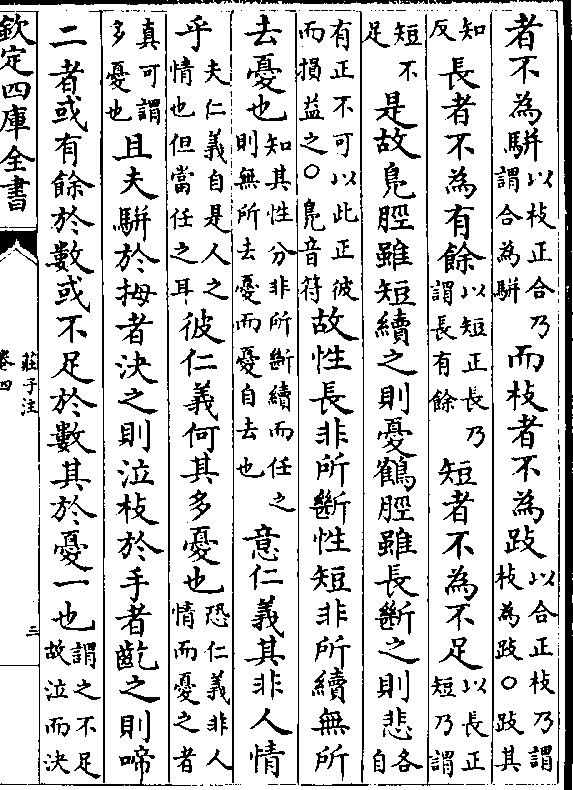 者不為駢以枝正合乃謂合為駢而枝者不為跂以合正枝乃謂枝為跂○跂其
知反長者不為有餘以短正長乃謂長有餘短者不為不足以長正短乃謂
短不足是故鳬脛雖短續之則憂鶴脛雖長斷之則悲各自
有正不可以此正彼而損益之○鳬音符故性長非所斷性短非所續無所
去憂也知其性分非所斷續而任之則無所去憂而憂自去也意仁義其非人情
乎夫仁義自是人之情也但當任之耳彼仁義何其多憂也恐仁義非人情而憂之者
真可謂多憂也且夫駢於拇者決之則泣枝於手者齕之則啼
二者或有餘於數或不足於數其於憂一也謂之不足故泣而決
欽定四庫全書
莊子注
卷四
三